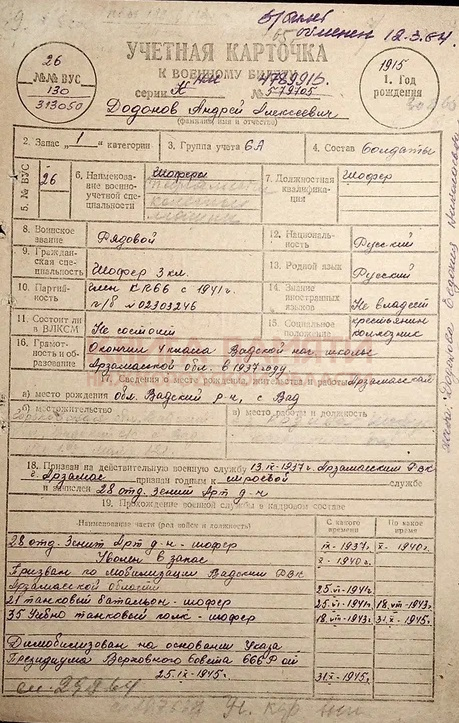 обменен 12.3.64.
26
№№ ВУС
130
313050
УЧЕТНАЯ КАРТОЧКА
К ВОЕННОМУ БИЛЕТУ
серии № 579705
Додонов Андрей Алексеевич
(фамилия, имя и отчество)
1915
1. Год
рождения
2. Запас „1" категории
3. Группа учета СА
4. Состав солдаты
5. № ВУС
26
6. Наименова-
ние военно-
учетной спе-
циальности
Шоферы
7. Должностная
квалифика-
ция
Шофер
8. Воинское
звание
Рядовой
12. Националь-
ность
Русский
9. Граждан-
ская спе-
циальность
Шофер 3 кл.
13. Родной язык
Русский
10. Партий-
ность
член КПСС с 1941 г.
п/б № 02303246
14. Знание
иностранных
языков
Не владеет
11. Состоит ли
в ВЛКСМ
Не состоит
15. Социальное
положение
крестьянин
колхозник
16. Грамот-
ность и об-
разование
Окончил 4 класса Вадской нач. школы
Арзамасской обл. в 1937 году
17. Сведения о месте рождения, жительства и работы
Арзамасская
а) место рождения обл. Вадский р-н, с Вад
б) местожительство
в) место работы и должность
18. Призван на действительную военную службу 13.IX-1937г. Арзамасским РВК
г. Арзамас признан годным к строевой службе
и зачислен 28 отд. Зенит Арт д-н
19. Прохождение военной службы в кадровом составе
Наименование части (род войск и должность)
С какого
времени
По какое
время
28 отд. Зенит Арт д-н - шофер IX-1937г. X-1940г.
Уволен в запас X-1940г.
Призван по мобилизации Вадским РВК
Арзамасской области 25.VI-1941г.
21 танковый батальон - шофер 25.VI-1941г. 18.VII-1943г.
35 Учебно танковый полк - шофер 18.VII-1943г. 31.X-1945г.
Димобилизован на основании Указа
Президиума Верховного совета СССР от
25.IX-1945г. 31.X-1945г.